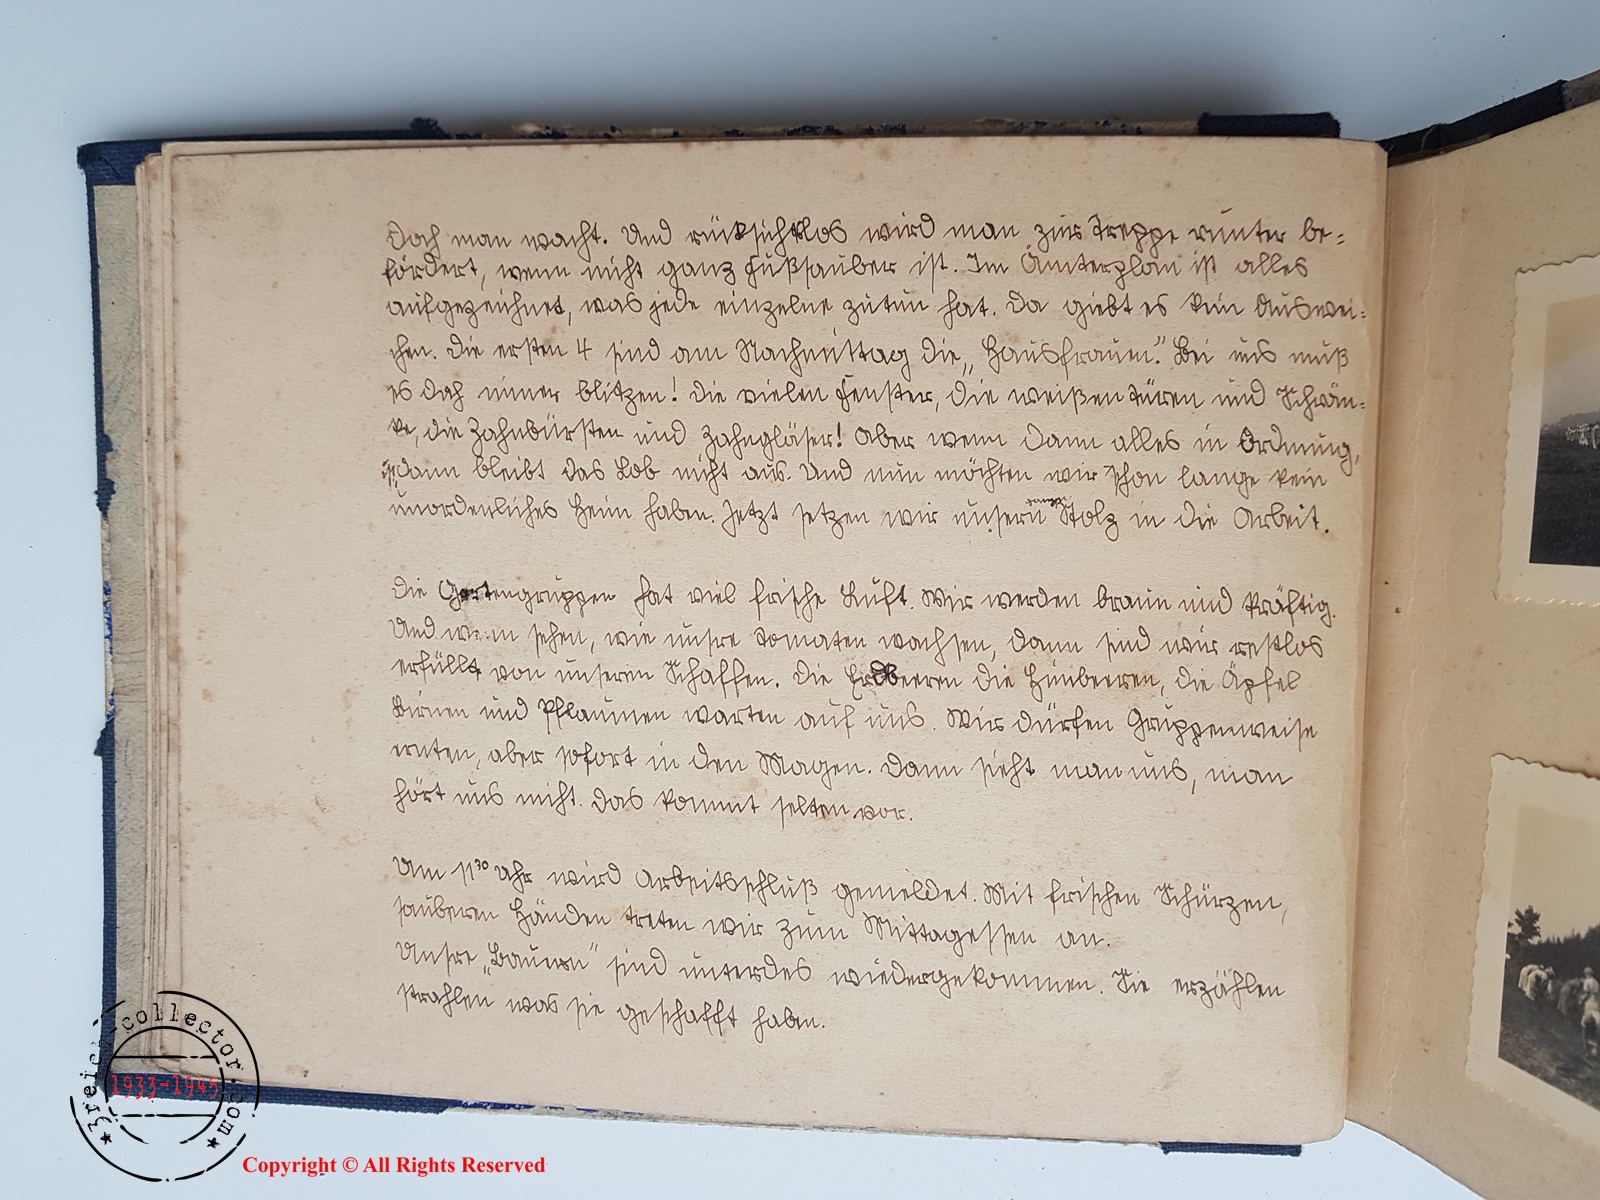 Doch man wacht. Und rücksichtslos wird man zur Treppe runter be=
fördert, wenn nicht ganz fußsauber ist. Im Ämterplan ist alles
aufgezeichnet, was jede einzelne zutun hat. Da giebt es kein Auswei=
chen. Die ersten 4 sind am Nachmittag die „Hausfrauen". Bei uns muß
es doch immer blitzen! Die vielen Fenster, die weißen Türen und Schrän=
ke, die Zahnbürsten und Zahngläser! Aber wenn dann alles in Ordnung,
ist, dann bleibt das Lob nicht aus. Und nun möchten wir schon lange kein
unordentliches Heim haben. Jetzt setzen wir unsern Stolz in die Arbeit.
Die Gartengruppen hat viel frische Luft. Wir werden braun und kräftig.
Und wenn sehen, wie unsre Tomaten wachsen, dann sind wir restlos
erfüllt von unserem Schaffen. Die Erdbeeren die Himbeeren, die Äpfel
Birnen und Pflaumen warten auf uns. Wir dürfen Gruppenweise
ernten, aber sofort in den Magen. Dann sieht man uns, man
hört uns nicht. Das kommt selten vor.
Um 11³⁰ Uhr wird Arbeitsschluß gemeldet. Mit frischen Schürzen,
sauberen Händen treten wir zum Mittagessen an.
Unsre „Bauern" sind unterdes wiedergekommen. Sie erzählen
strahlen was sie geschafft haben.
3reich-collector.com
1933-1945
Copyright © All Rights Reserved